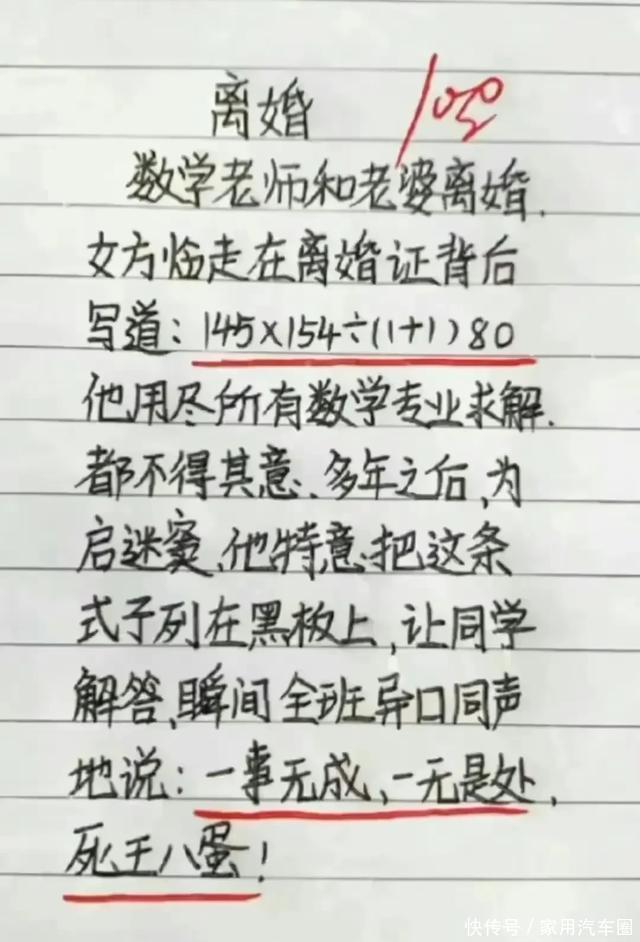 离婚 100
数学老师和老婆离婚.
女方临走在离婚证背后
写道:145×154÷(1+1)80
他用尽所有数学专业求解.
都不得其意、多年之后,为
启迷窦,他特意把这条
式子列在黑板上,让同学
解答,瞬间全班异口同声
地说:一事无成,一无是处,
死王八蛋!
快传号/家用汽车圈